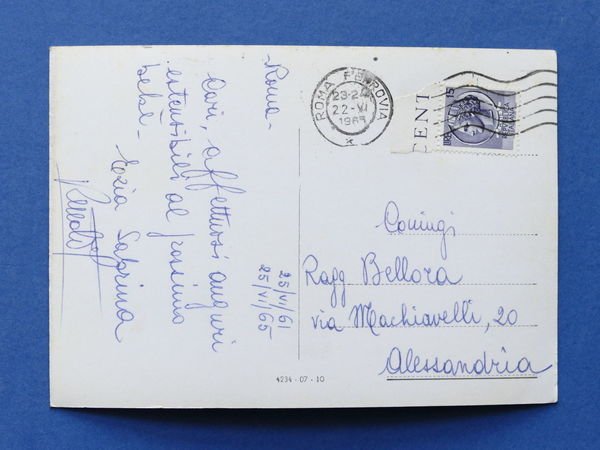 Roma -
Cari, affettuosi auguri
estensibili al prossimo
bebè -
Ezia Sabrina
25/VI/61
25/VI/65
ROMA FERROVIA
23-24
22-VI
1965
CENT
15
Coniugi
Ragg Bellora
via Machiavelli, 20
Alessandria
4234 - 07 - 10